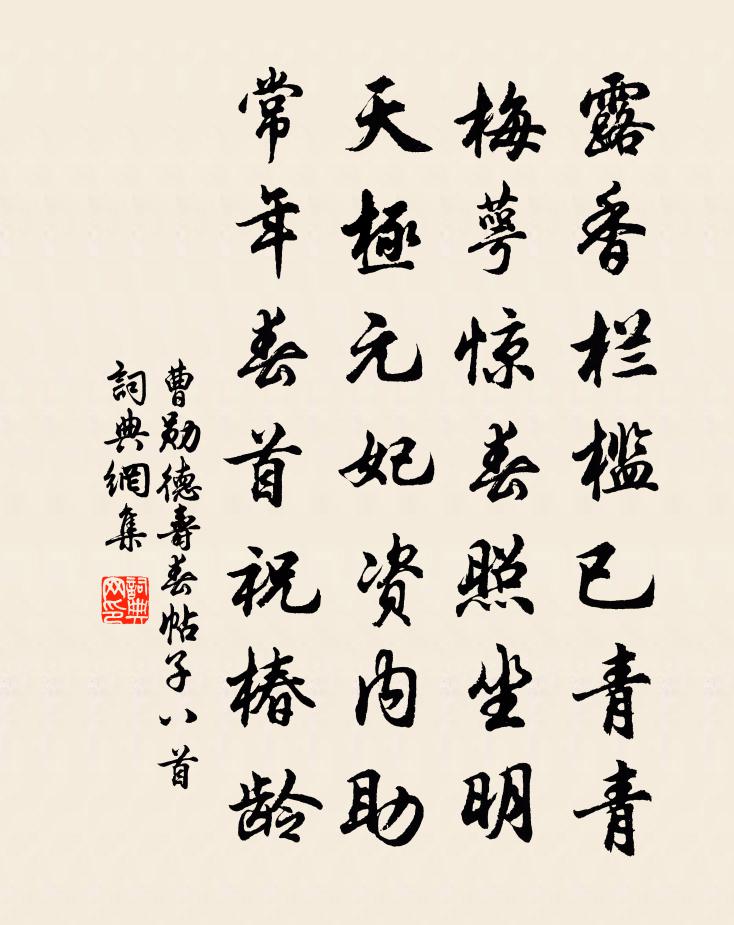 露香栏槛已青青
梅萼惊春照坐明
天极元妃资内助
常年春首祝椿龄
曹勋德寿春帖子八首
詞典網集
詞典
网印